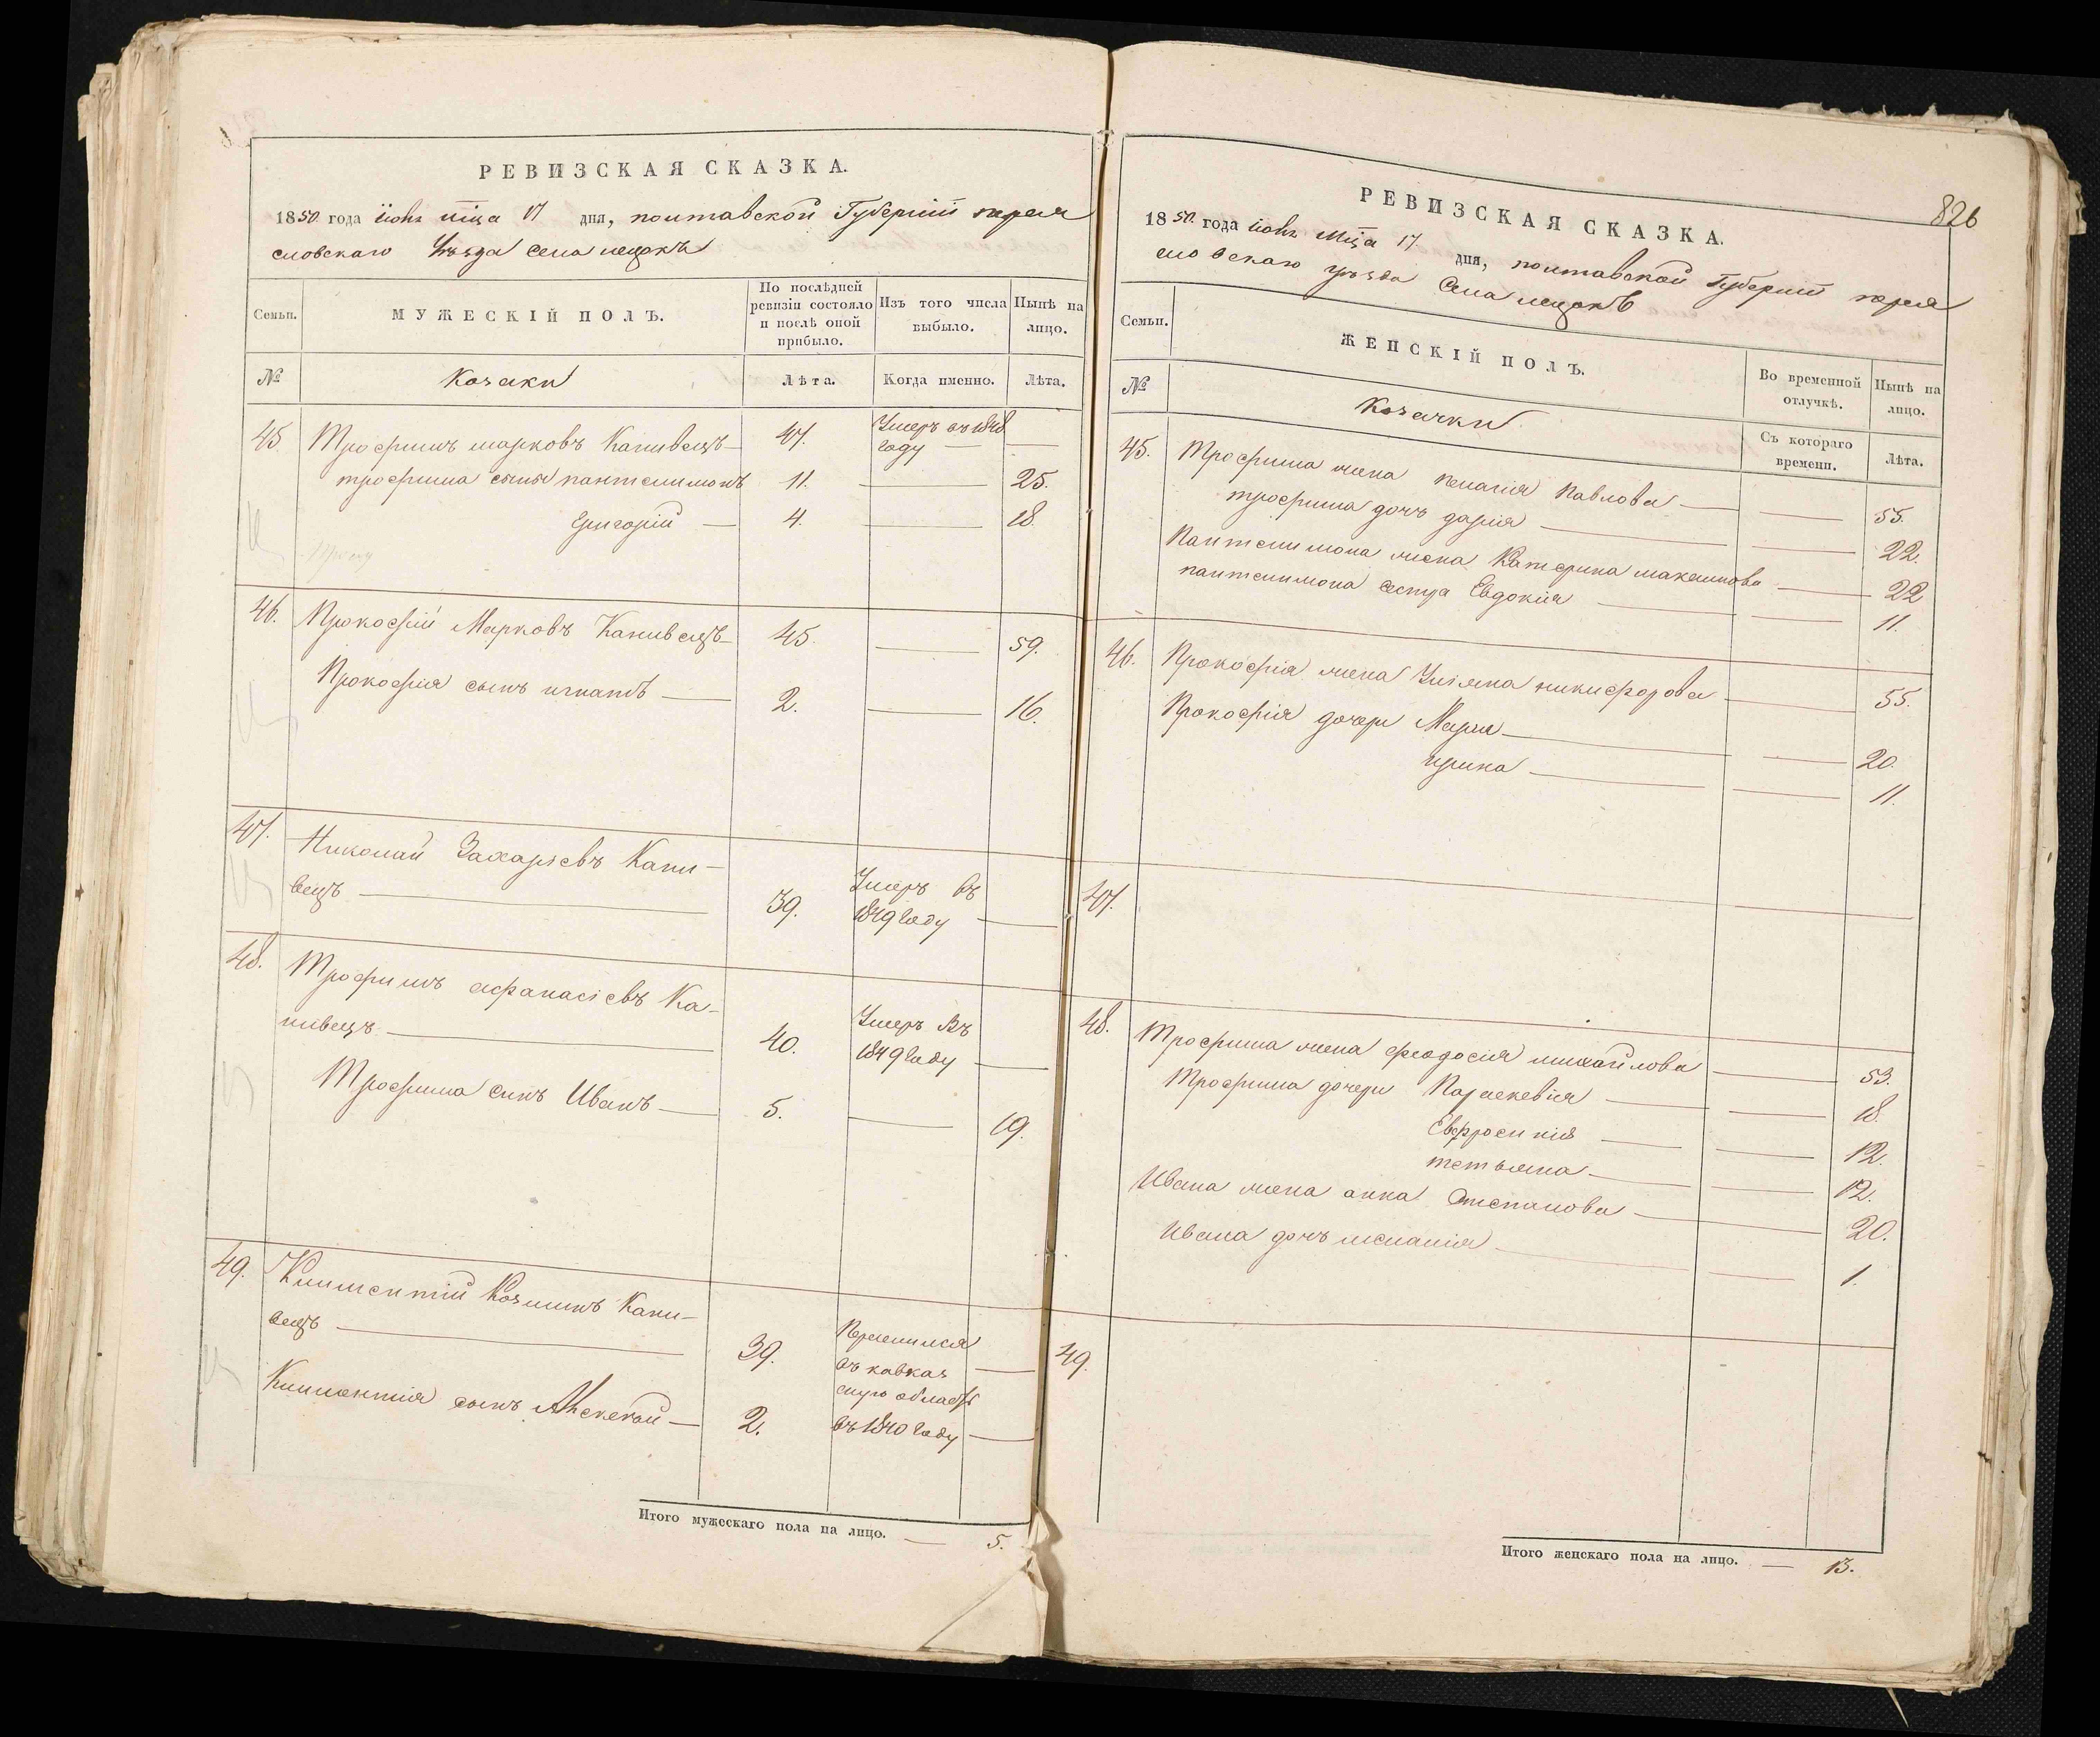 РЕВИЗСКАЯ СКАЗКА.
1850 года июня мца 17 дня, полтавской Губерніи перея
словскаго Уѣзда села лецокъ
Семьи.
МУЖЕСКІЙ ПОЛЪ.
По послѣдней ревизіи состояло и послѣ оной прибыло.
Изъ того числа выбыло.
Нынѣ на лицо.
№
Козаки
Лѣта.
Когда именно.
Лѣта.
45. Трофимъ марковъ Канивецъ 47. Умеръ въ 1848 году
трофима сыны пантелимонъ 11. 25.
Григорій 4. 18.
46. Прокофій Марковъ Канивецъ 45. 59.
Прокофія сынъ игнатъ 2. 16.
47. Николай Захаріевъ Кани-
вецъ 39. Умеръ въ 1849 году
48. Трофимъ афанасіевъ Ка-
нивецъ 40. Умеръ въ 1849 году
Трофима синъ Иванъ 5. 19.
49. Климентій Козминъ Кани-
вецъ 39. Переселился
въ кавказ
скую область
Климентія сынъ Алексѣй 2. въ 1840 году
Итого мужескаго пола на лицо. 5.
826
РЕВИЗСКАЯ СКАЗКА.
1850. года июня мца 17 дня, полтавской Губерніи перея
словскаго уѣзда Села лецокъ
Семьи.
ЖЕНСКІЙ ПОЛЪ.
Во временной отлучкѣ.
Нынѣ на лицо.
№
Козачки
Съ котораго времени.
Лѣта.
45. Трофима жена пелагія Павлова 55.
трофима дочь дарія 22.
Пантелимона жена Катерина максимова 22
пантелимона сестра Евдокія 11.
46. Прокофія жена Уліяна никифорова 55.
Прокофія дочери Марія 20.
ирина 11.
47.
48. Трофима жена феодосія михайлова 53.
Трофима дочери Параскевія 18.
Евфросинія 12.
тетьяна 12.
Ивана жена анна Степанова 20.
Ивана дочь меланія 1.
49.
Итого женскаго пола на лицо. 13.